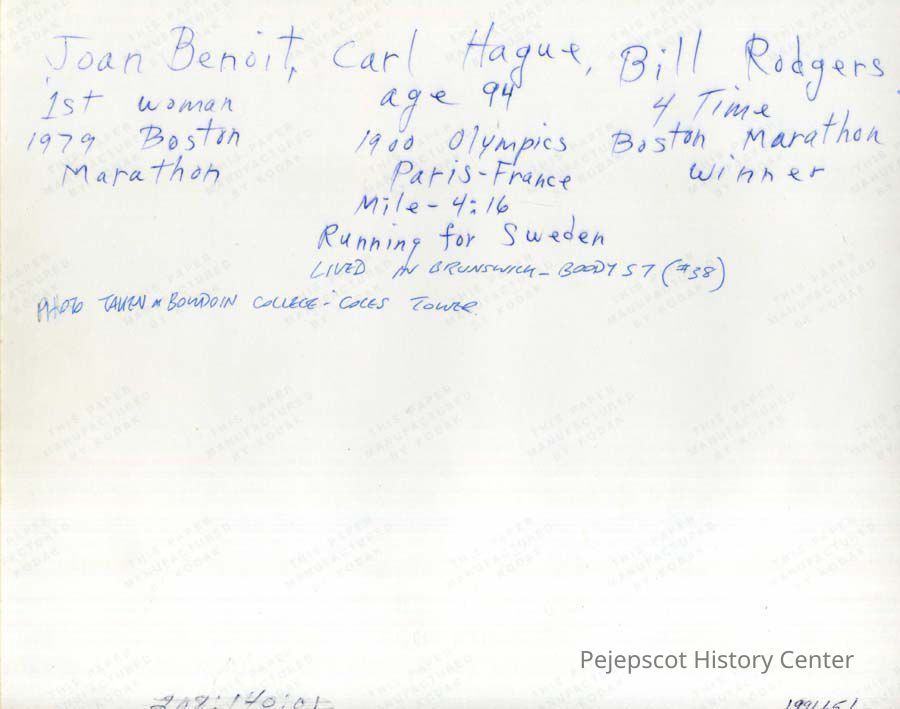 Joan Benoit, Carl Hague, Bill Rodgers
1st woman age 94 4 Time
1979 Boston 1900 Olympics Boston Marathon
Marathon Paris-France Winner
Mile - 4:16
Running for Sweden
LIVED IN BRUNSWICK - BOODY ST (#38)
PHOTO TAKEN @ BOWDOIN COLLEGE - COLES TOWER.
THIS PAPER
MANUFACTURED
BY KODAK
Pejepscot History Center